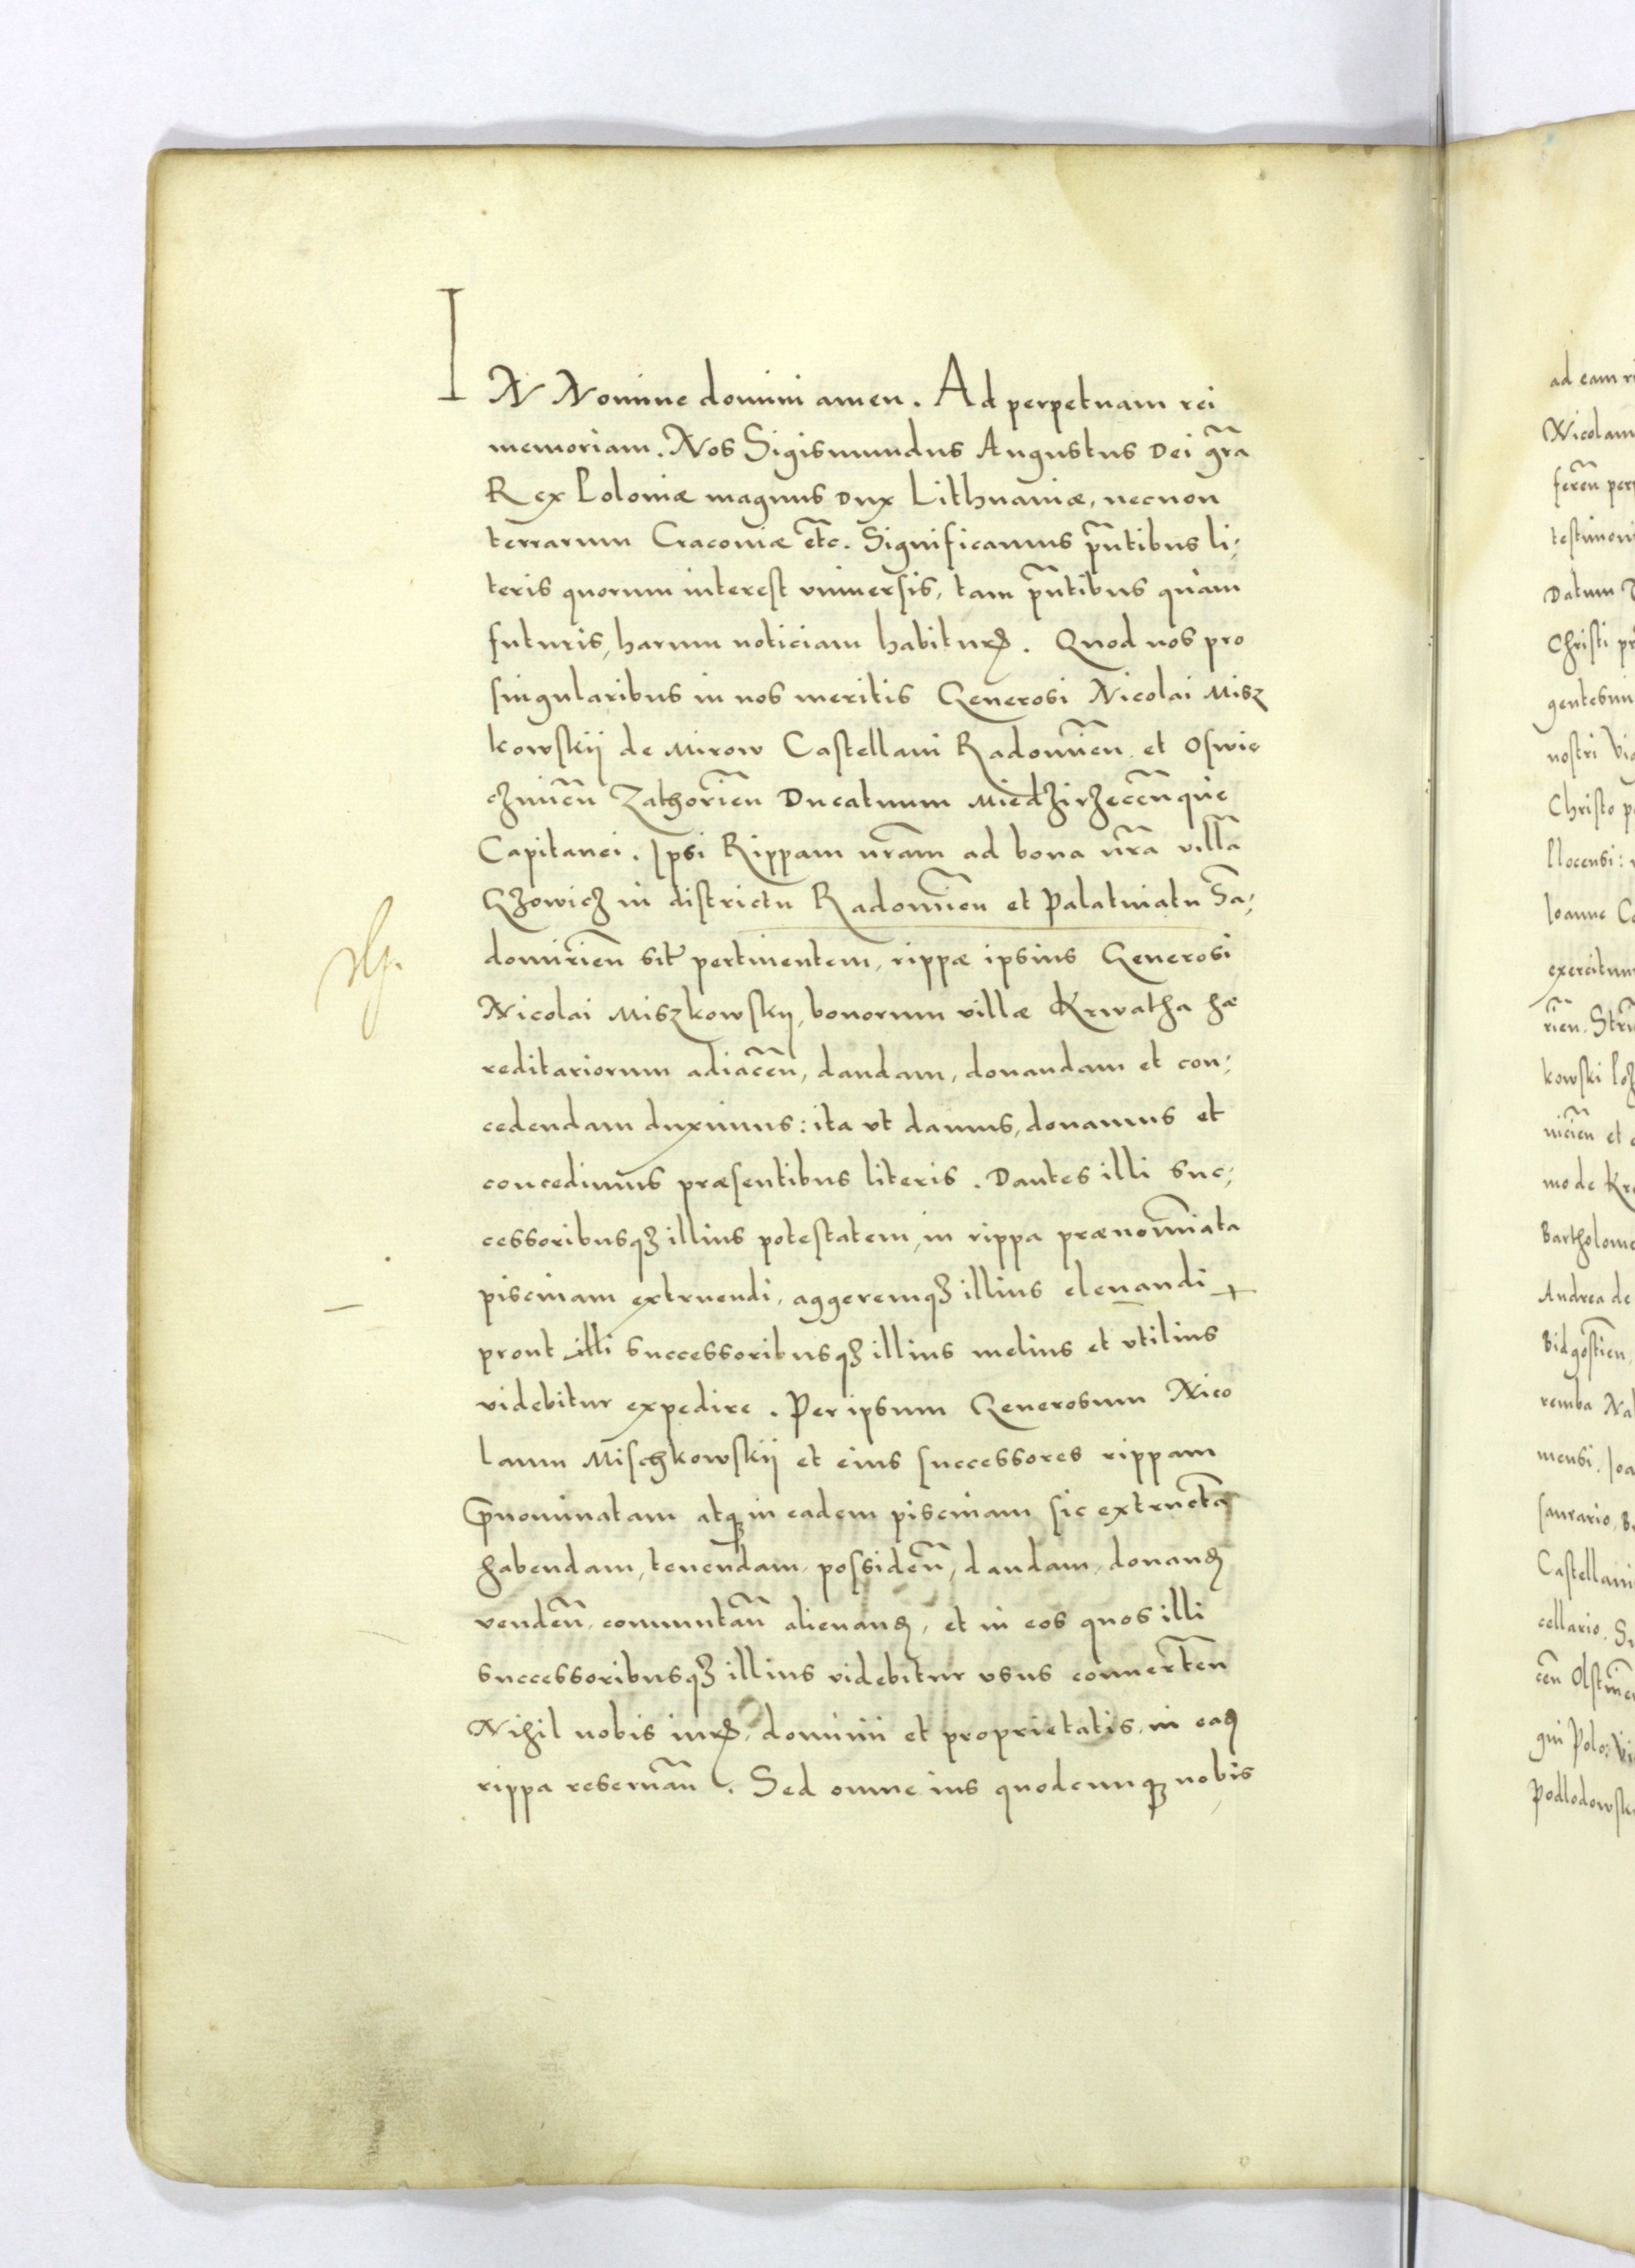 IN Nomine domini amen. Ad perpetuam rei
memoriam. Nos Sigismundus Augustus Dei gr̃a
Rex Poloniæ magnus Dux Lithuaniæ, necnon
terrarum Cracoviæ etc̃. Significamus pñtibus li;
teris quorum interest vniuersis, tam pñtibus quàm
futuris, harum noticiam habiturꝭ. Quod nos pro
singularibus in nos meritis Generosi Nicolai Misz
kowskij de Mirow Castellani Radomieñ et Oswie
czimeñ Zathorieñ Ducatuum Miedzirzeceñque
Capitanei. Ipsi Rippam nr̃am ad bona nr̃a villã
Gzowicz in districtu Radomieñ et Palatinatu Sã;
domirieñ sit̃ pertinentem, rippæ ipsius Generosi
Nicolai Miszkowskij, bonorum villæ Krwatha hæ
reditariorum adiaceñ, dandam, donandam et con;
cedendam duximus: ita vt damus, donamus et
concedimus præsentibus literis. Dantes illi suc;
cessoribusqꝫ illius potestatem, in rippa prænomĩata
piscinam extruendi, aggeremqꝫ illius eleuandi
prout illi successoribusqꝫ illius melius et vtilius
videbitur expedire. Per ipsum Generosum Nico
laum Mischkowskij et eius successores rippam
p̃nominatam atqꝫ in eadem piscinam sic extructã
habendam, tenendam, possideñ, dandam, donanꝺ
vendeñ, commutañ alienanꝺ, et in eos quos illi
successoribusqꝫ illius videbitur vsus conuerteñ
Nihil nobis iurꝭ, dominii et proprietatis, in eaꝺ
rippa reseruañ. Sed omne ius quodcunqꝫ nobis
ad eam
Nicolaum
fereñ
Datum
Christi
nostri
Christo
Ioanne
rieñ.
kowski
et
mo de
Bartholome
Andrea de
Bidgostieñ,
mensi.
Castellani
cellario.
Podlodowsk